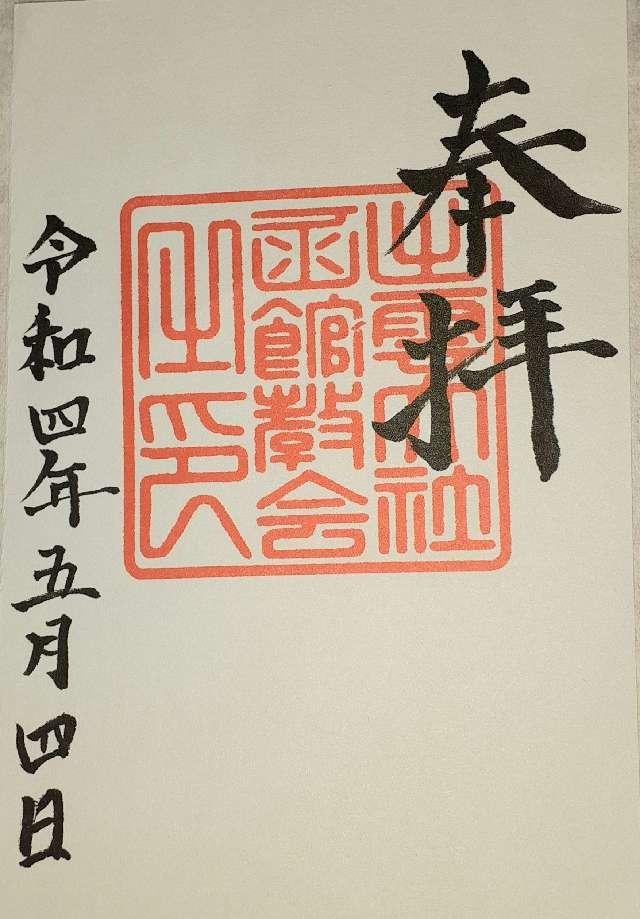 奉拝
出雲大社
函館教会
之印
令和四年五月四日